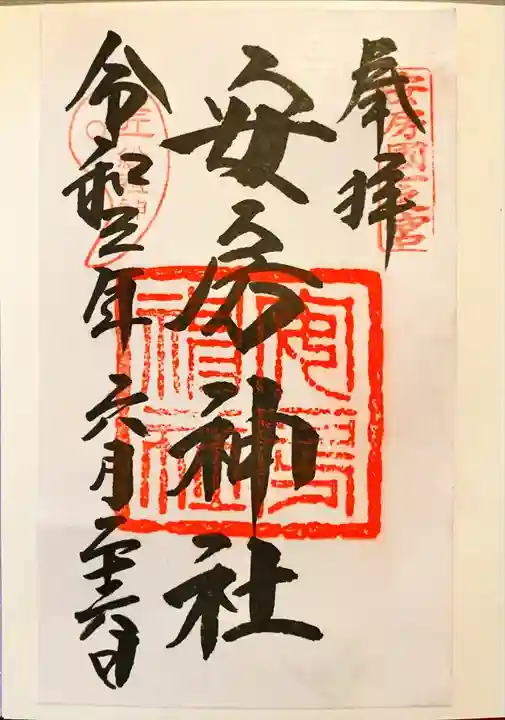 奉拝
安房國一之宮
安房神社
安房神社
令和三年六月二十六日